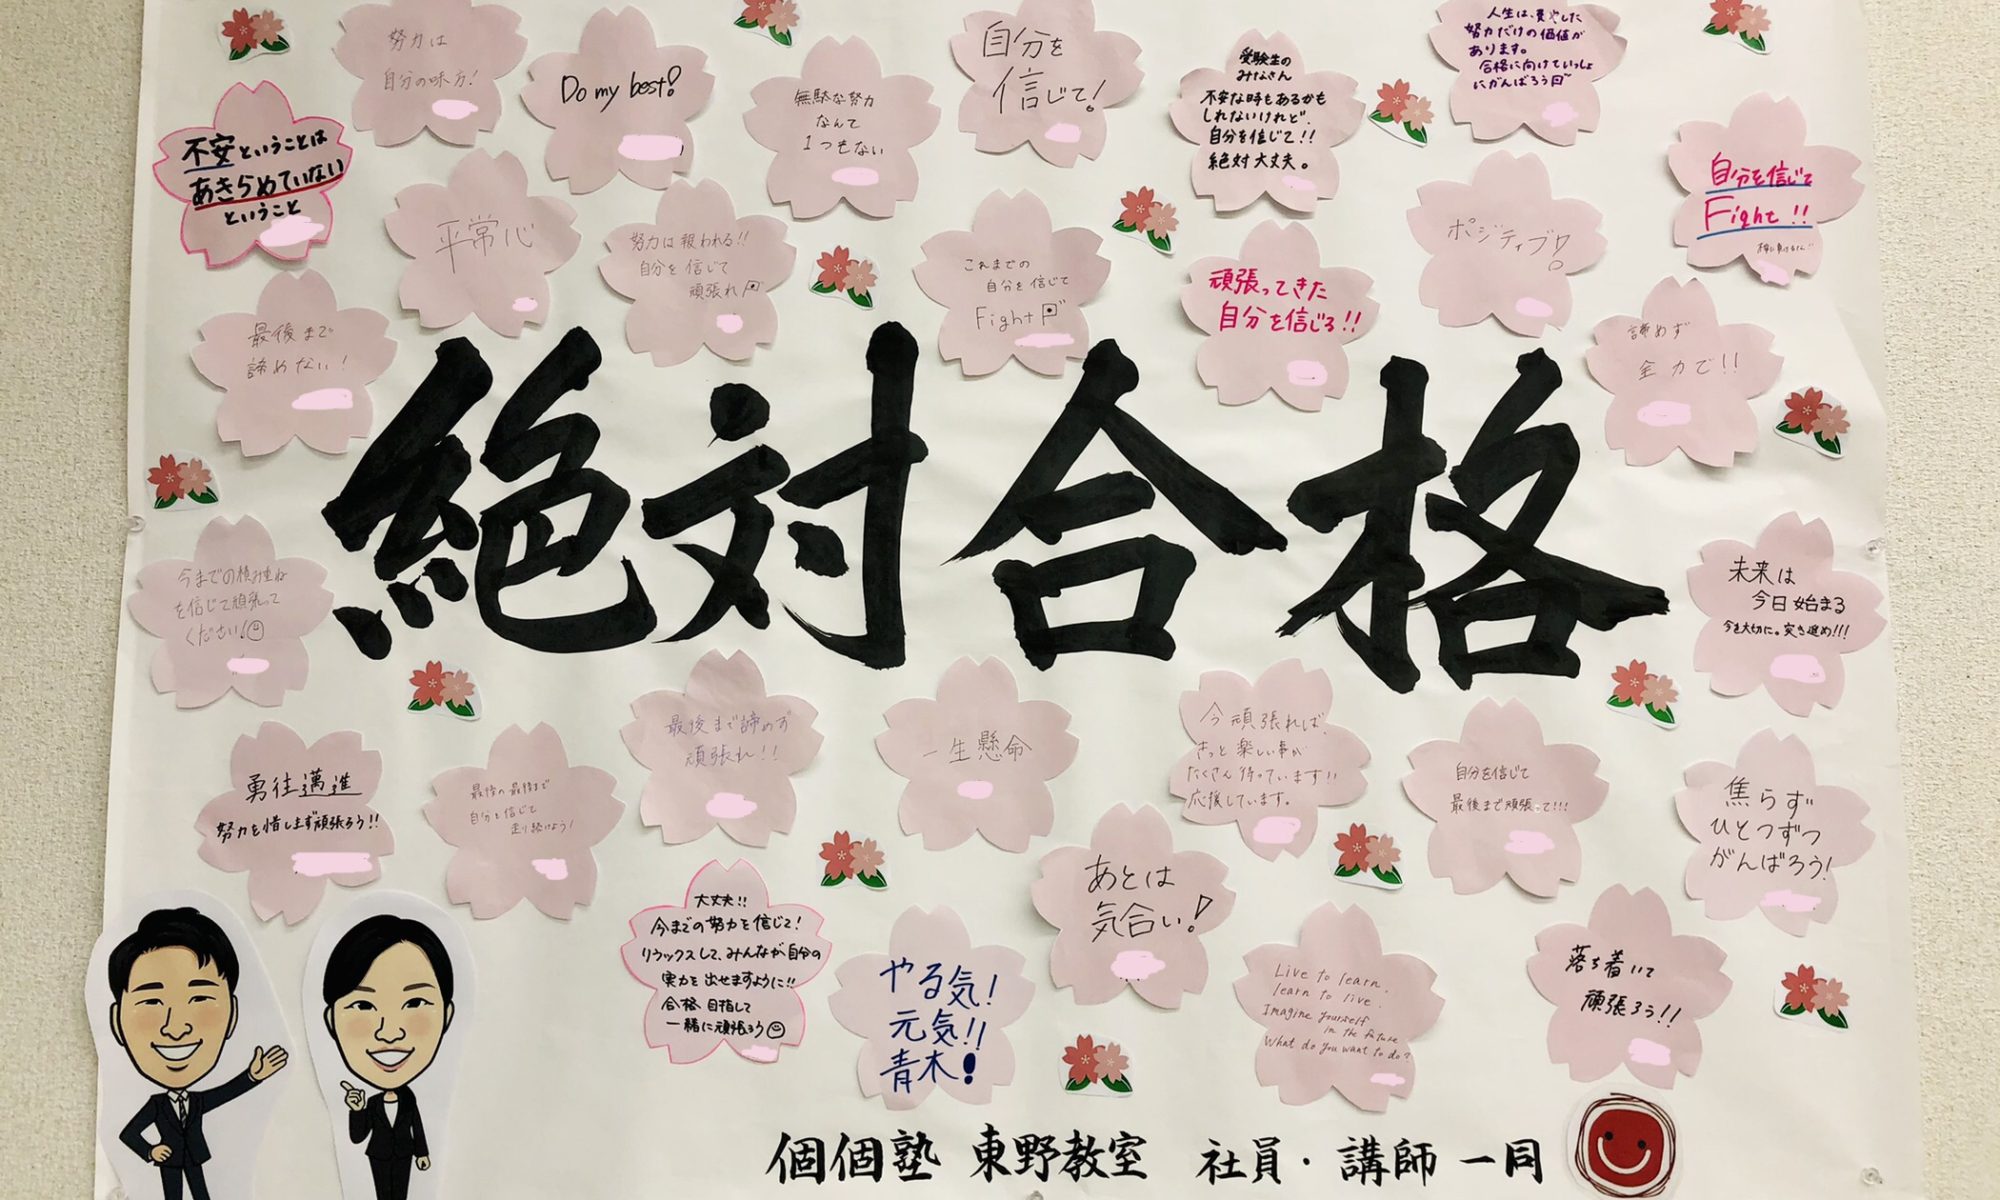 努力は
自分の味方!
Do my best!
無駄な努力
なんて
1つもない
自分を
信じて!
受験生の
みなさん
不安な時もあるかも
しれないけれど、
自分を信じて!!
絶対大丈夫。
人生は、費やした
努力だけの価値が
あります。
合格に向けていっしょ
にがんばろう
不安ということは
あきらめていない
ということ
平常心
努力は報われる!!
自分を信じて
頑張れ
これまでの
自分を信じて
Fight
頑張ってきた
自分を信じろ!!
ポジティブ!
自分を信じて
Fight!!
最後まで
諦めない!
諦めず
全力で!!
絶対合格
今までの積み重ね
を信じて頑張って
ください!
未来は
今日始まる
今を大切に。突き進め!!!
勇往邁進
努力を惜しまず頑張ろう!!
最後の最後まで
自分を信じて
走り続けよう!
最後まで諦めず
頑張れ!!
一生懸命
今頑張れば、
きっと楽しい事が
たくさん待っています!!
応援しています。
自分を信じて
最後まで頑張って!!!
焦らず
ひとつずつ
がんばろう!
大丈夫!!
今までの努力を信じて!
リラックスして、みんなが自分の
実力を出せますように!!
合格目指して
一緒に頑張ろう
やる気!
元気!!
青木!
あとは
気合い!
Live to learn,
learn to live.
Imagine yourself
in the future
What do you want to do?
落ち着いて
頑張ろう!!
個個塾 東野教室 社員・講師一同